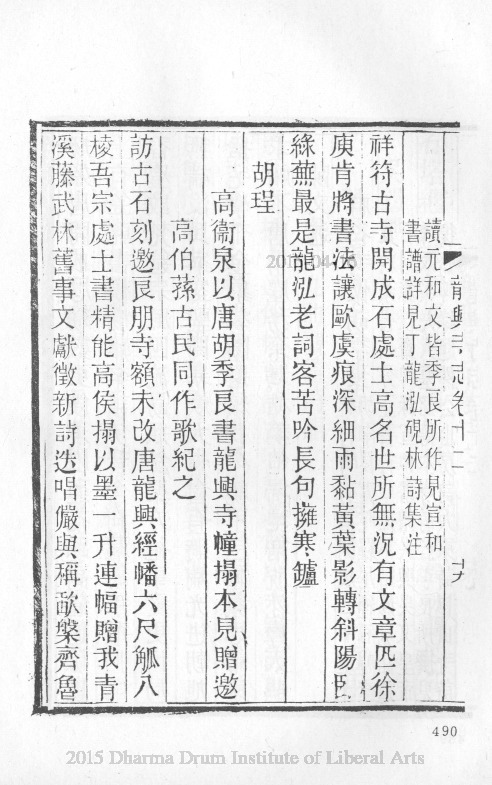 龍興寺志卷十二 十九
讀元和文皆季良所作見宣和
書譜詳見丁龍泓硯林詩集注
祥符古寺開成石處士高名世所無況有文章匹徐
庾肯將書法讓歐虞痕深細雨黏黃葉影轉斜陽臥
綠蕪最是龍泓老詞客苦吟長句擁寒鑪
胡珵
高衞泉以唐胡季良書龍興寺幢搨本見贈邀
高伯蓀古民同作歌紀之
訪古石刻邀良朋寺額未改唐龍興經幡六尺觚八
棱吾宗處士書精能高侯搨以墨一升連幅贈我青
溪藤武林舊事文獻徵新詩迭唱儼與稱歃槃齊魯
490
2015 Dharma Drum Institute of Liberal Arts